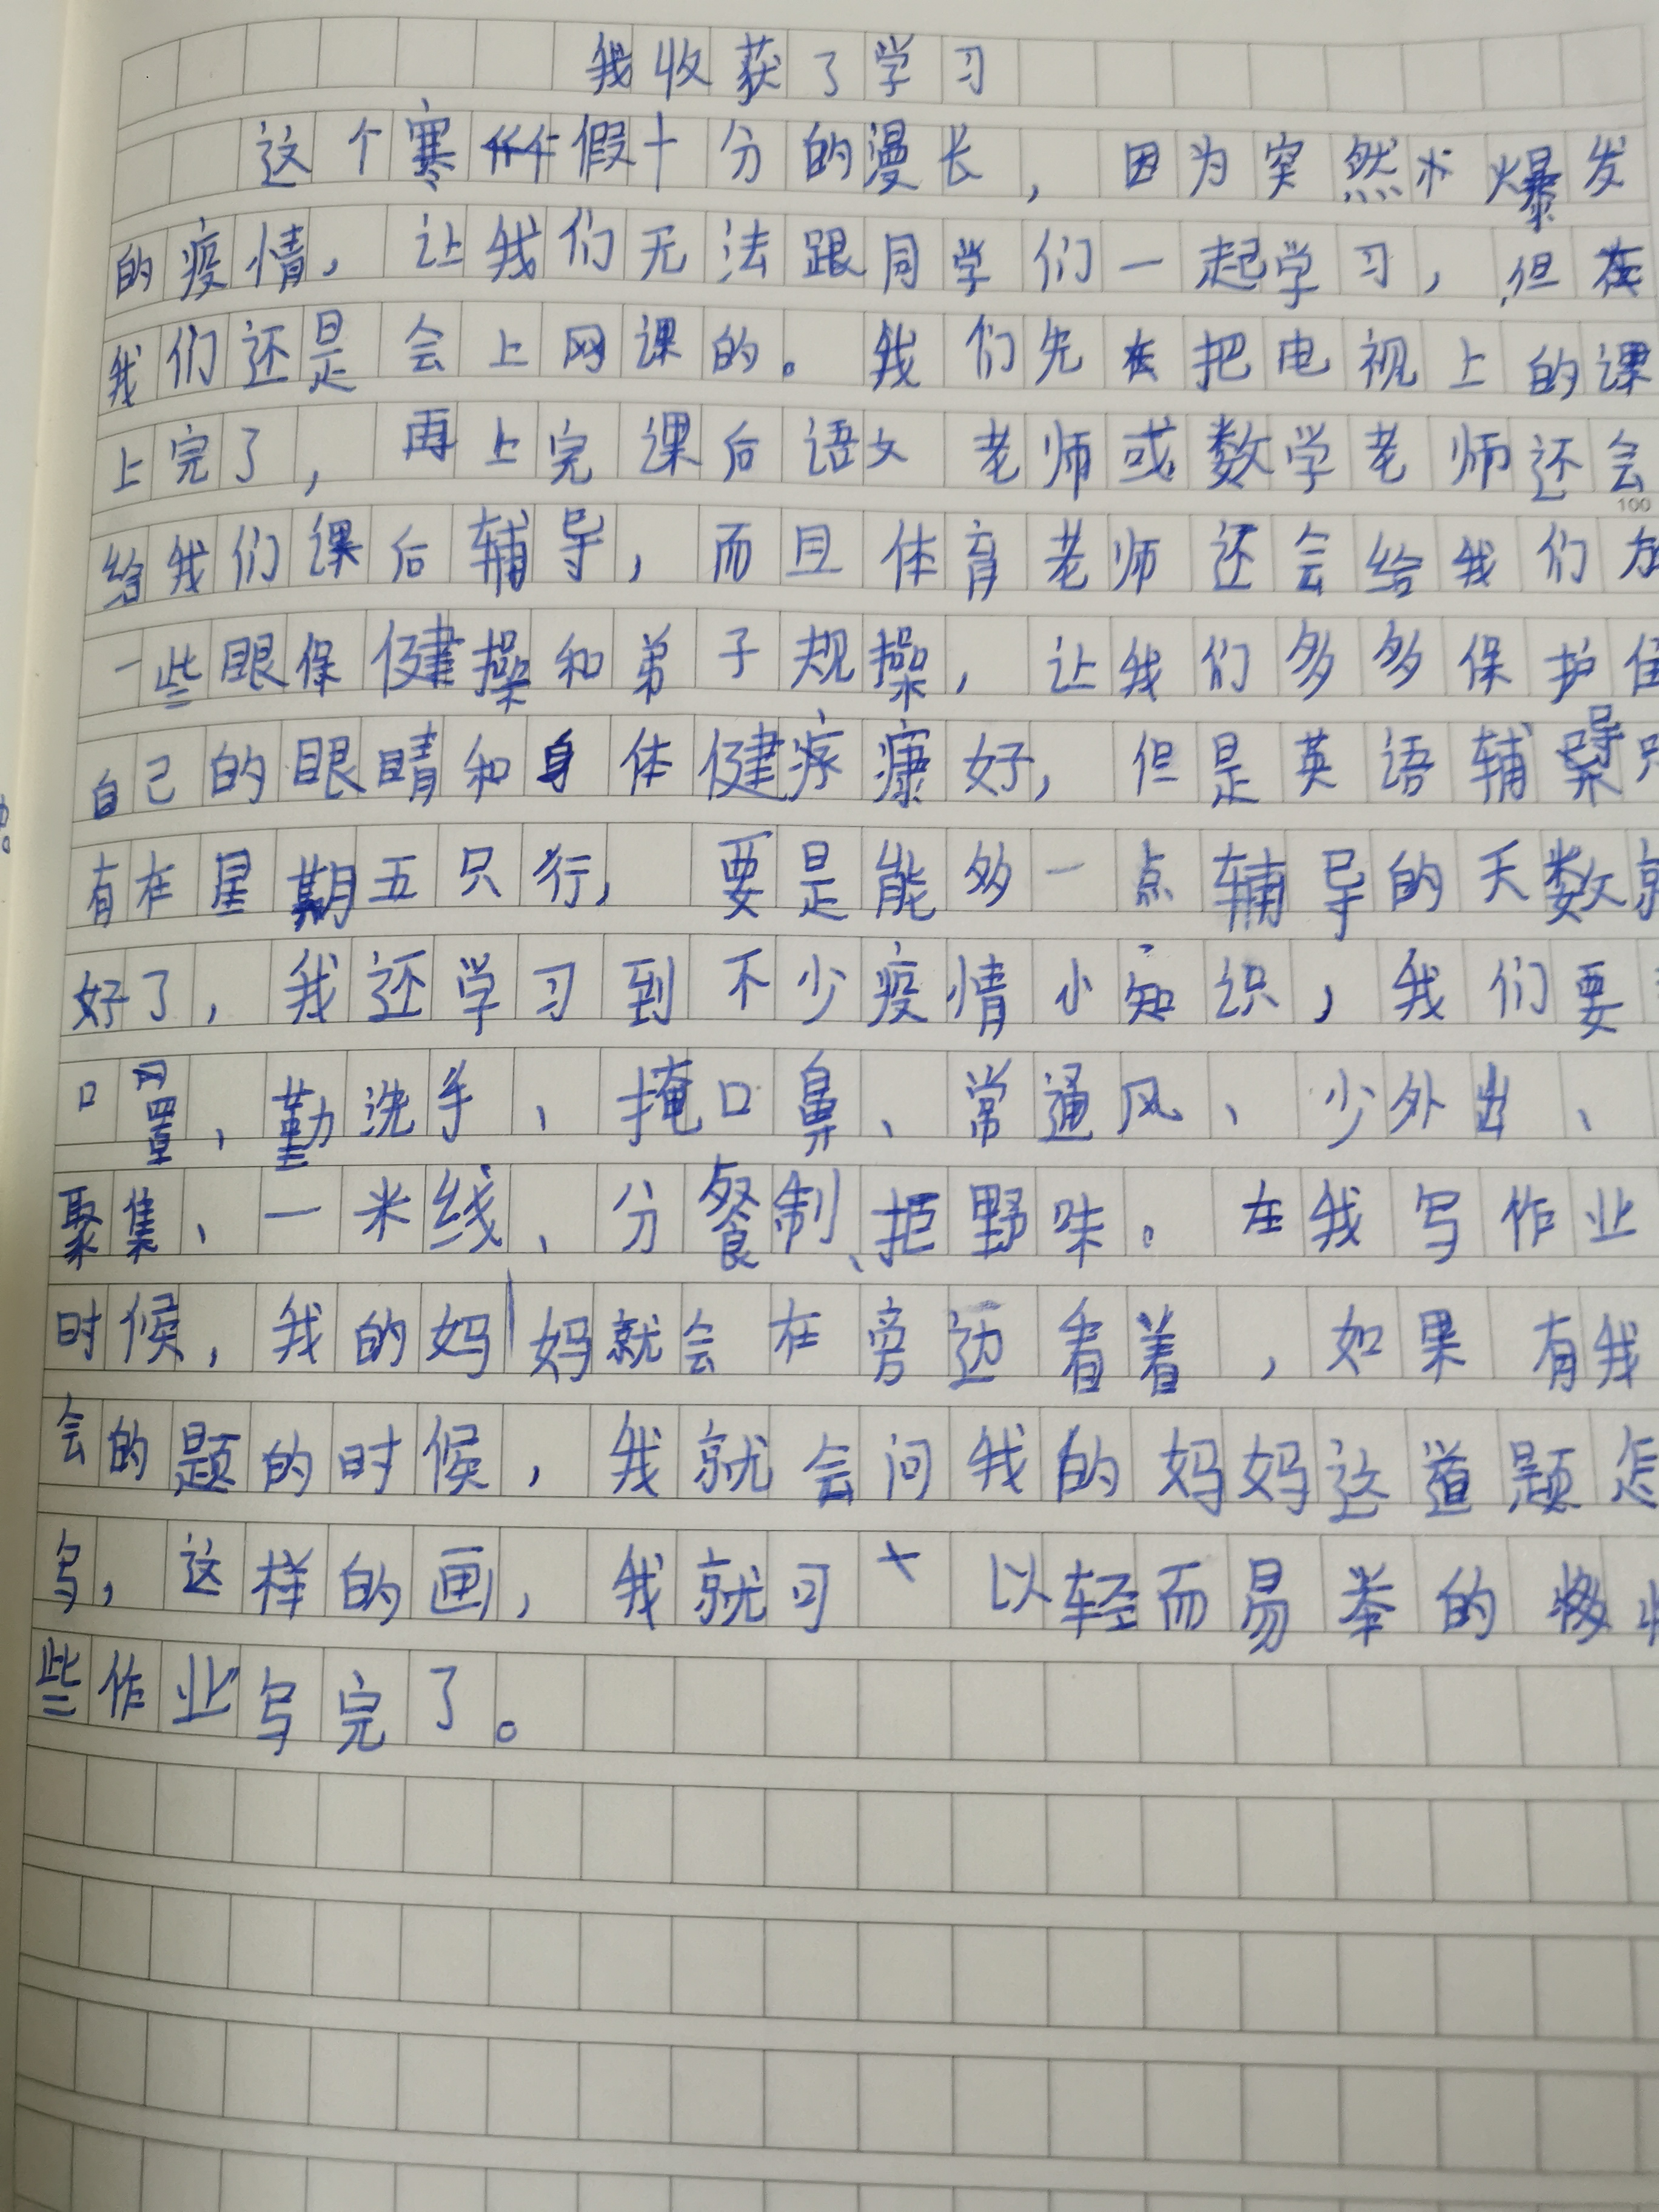 我收获了学习
这个寒假十分的漫长，因为突然爆发
的疫情，让我们无法跟同学们一起学习，但
我们还是会上网课的。我们先把电视上的课
上完了，再上完课后语文老师或数学老师还会
100
给我们课后辅导，而且体育老师还会给我们加
一些眼保健操和弟子规操，让我们多多保护住
自己的眼睛和身体健康好，但是英语辅导只
有在星期五只行，要是能多一点辅导的天数就
好了，我还学习到不少疫情小知识，我们要
口罩、勤洗手、掩口鼻、常通风、少外出、
聚集、一米线、分餐制、拒野味。在我写作业
时候，我的妈妈就会在旁边看着，如果有我
会的题的时候，我就会问我的妈妈这道题怎
写，这样的画，我就可以轻而易举的将
些作业写完了。